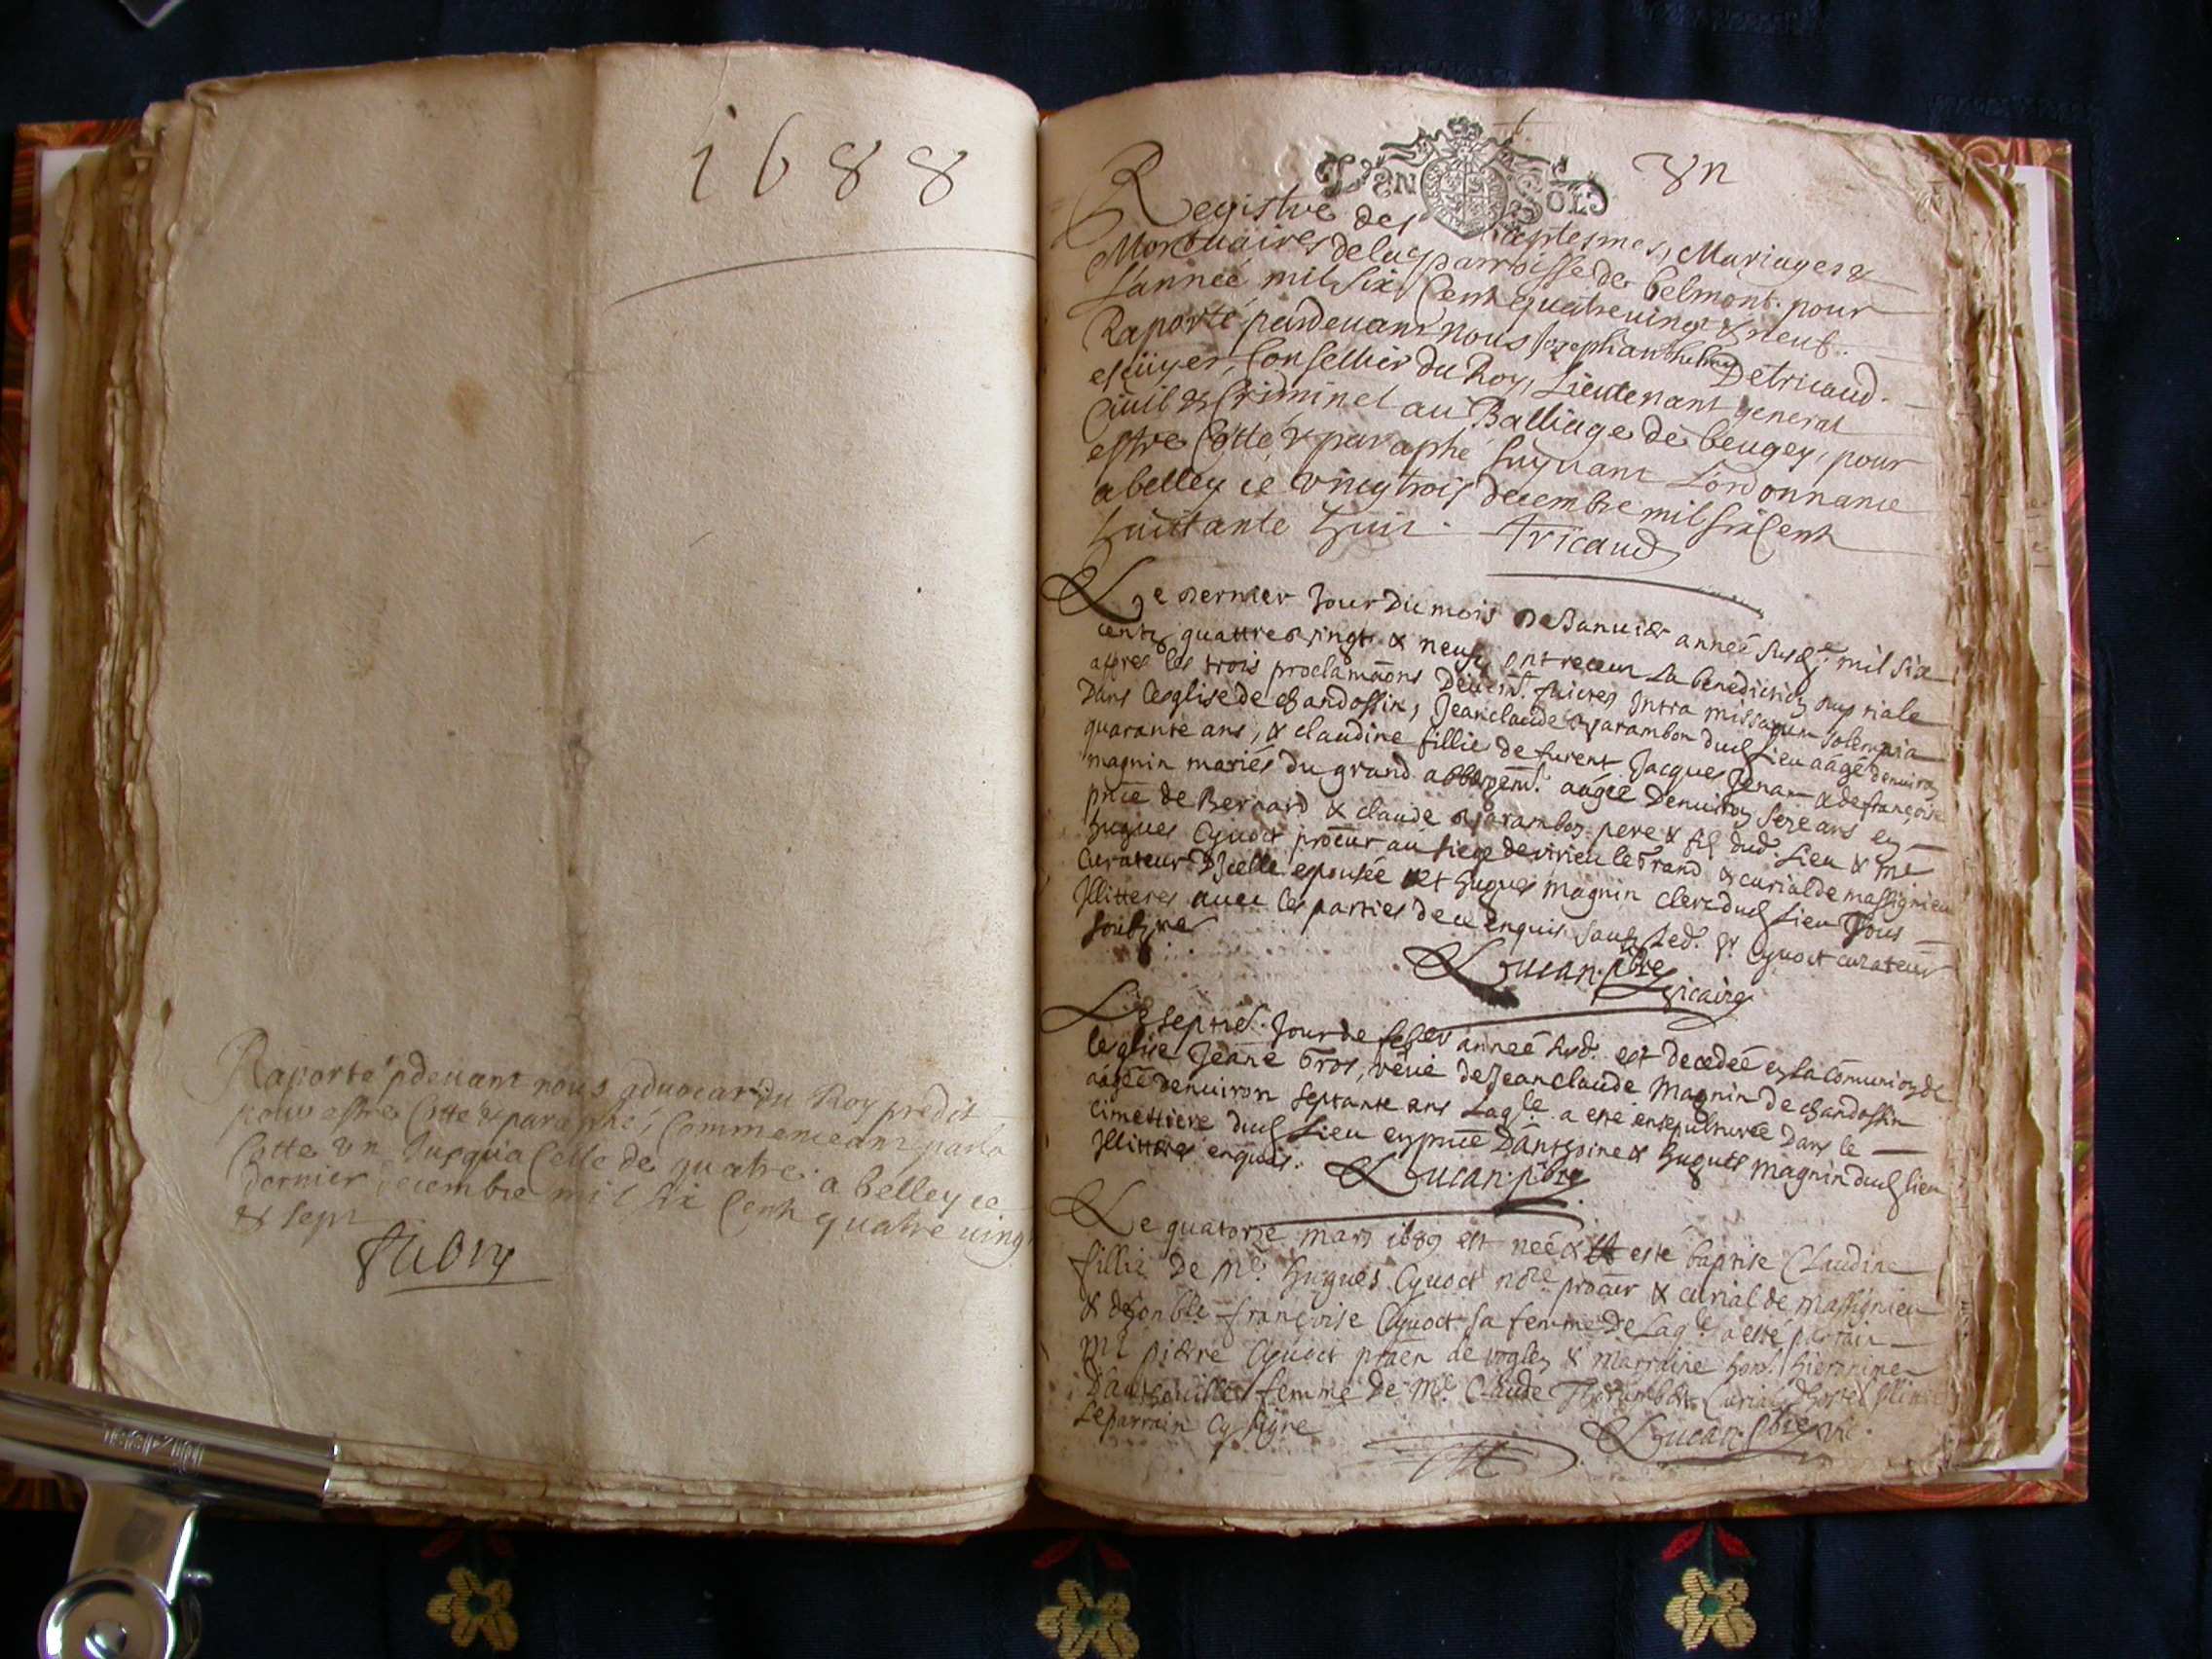 1688
Raporté pdevant nous advocat du Roy predit
pour estre Cotté & paraphé, Commenceant par la
Cotte vn Jusqu'a Celle de quatre. a belley ce
dernier decembre mil six Cent quatre ving
& sept
vn
SOLS
Registre des baptesmes, Mariages &
Mortuaires de la parroisse de belmont pour
L'année mil six Cent quatre vingt & neuf.
Raporté pardevant nous Joseph anthelme Detricaud
escuyer, Conseillier du Roy, Lieutenant general
Ciuil & Criminel au Balliage de beugey, pour
estre Cotté & paraphé suyuant L'ordonnance
a belley ce vingt trois decembre mil six Cent
huictante huit. Tricaud
Le dernier Jour du mois de Januier année susd. mil six
cents quattre vingt & neuf, ont receu La benediction nuptiale
apres les trois proclamaons deuem. faictes Intra missarum solemnia
Dans l'esglise de chandossin, Jean claude du d Lieu aagé denuiron
quarante ans, & claudine fillie de furent Jacques & de françoise
magnin mariés du grand aagée denuiron seze ans en
pnce de Bernard & claude pere & fils dud. Lieu & me
hugues Cyuoct procur au siege de virieu le Grand & curial de massignieu
Curateur D'Icelle espousée et hugues magnin clerc dud Lieu Tous
Illitteres auec les parties de ce enquis sauf Led. Sr Cyuoct curateur
soubsigné
Lucan pbre vicaire
Le septie. Jour de feber année susd. est decedée en La comunion de
l'eglise Jeane Gros, veue de Jean claude Magnin de chandossin
aagée denuiron septante ans Laqle a esté ensepulturée Dans le
cimettiere dud Lieu en pnce D'anthoine & hugues magnin dud lieu
Illitteres enquis. Lucan pbre
Le quatorze mars 1689 est née & esté baptise Claudine
fillie de Me. hugues Cyuoct nore procur & curial de massignieu
& de honble françoise Cyuoct sa femme De Laqle a esté parrain
Me pierre Cyuoct & marraine hon. hieronime
femme de Me. Claude Curial
Le parrain Cy signe
Lucan pbre vic.